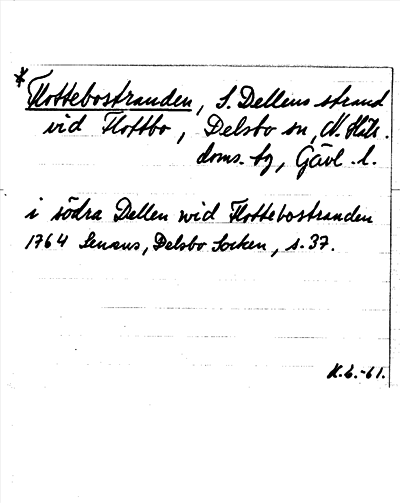 * Flottebostranden, S. Dellens strand
vid Flottbo, Delsbo sn, N. Häls.
doms. bg, Gävl. l.
i södra Dellen wid Flottebostranden
1764 Lenæus, Delsbo Socken, s. 37.
K.L.-61.